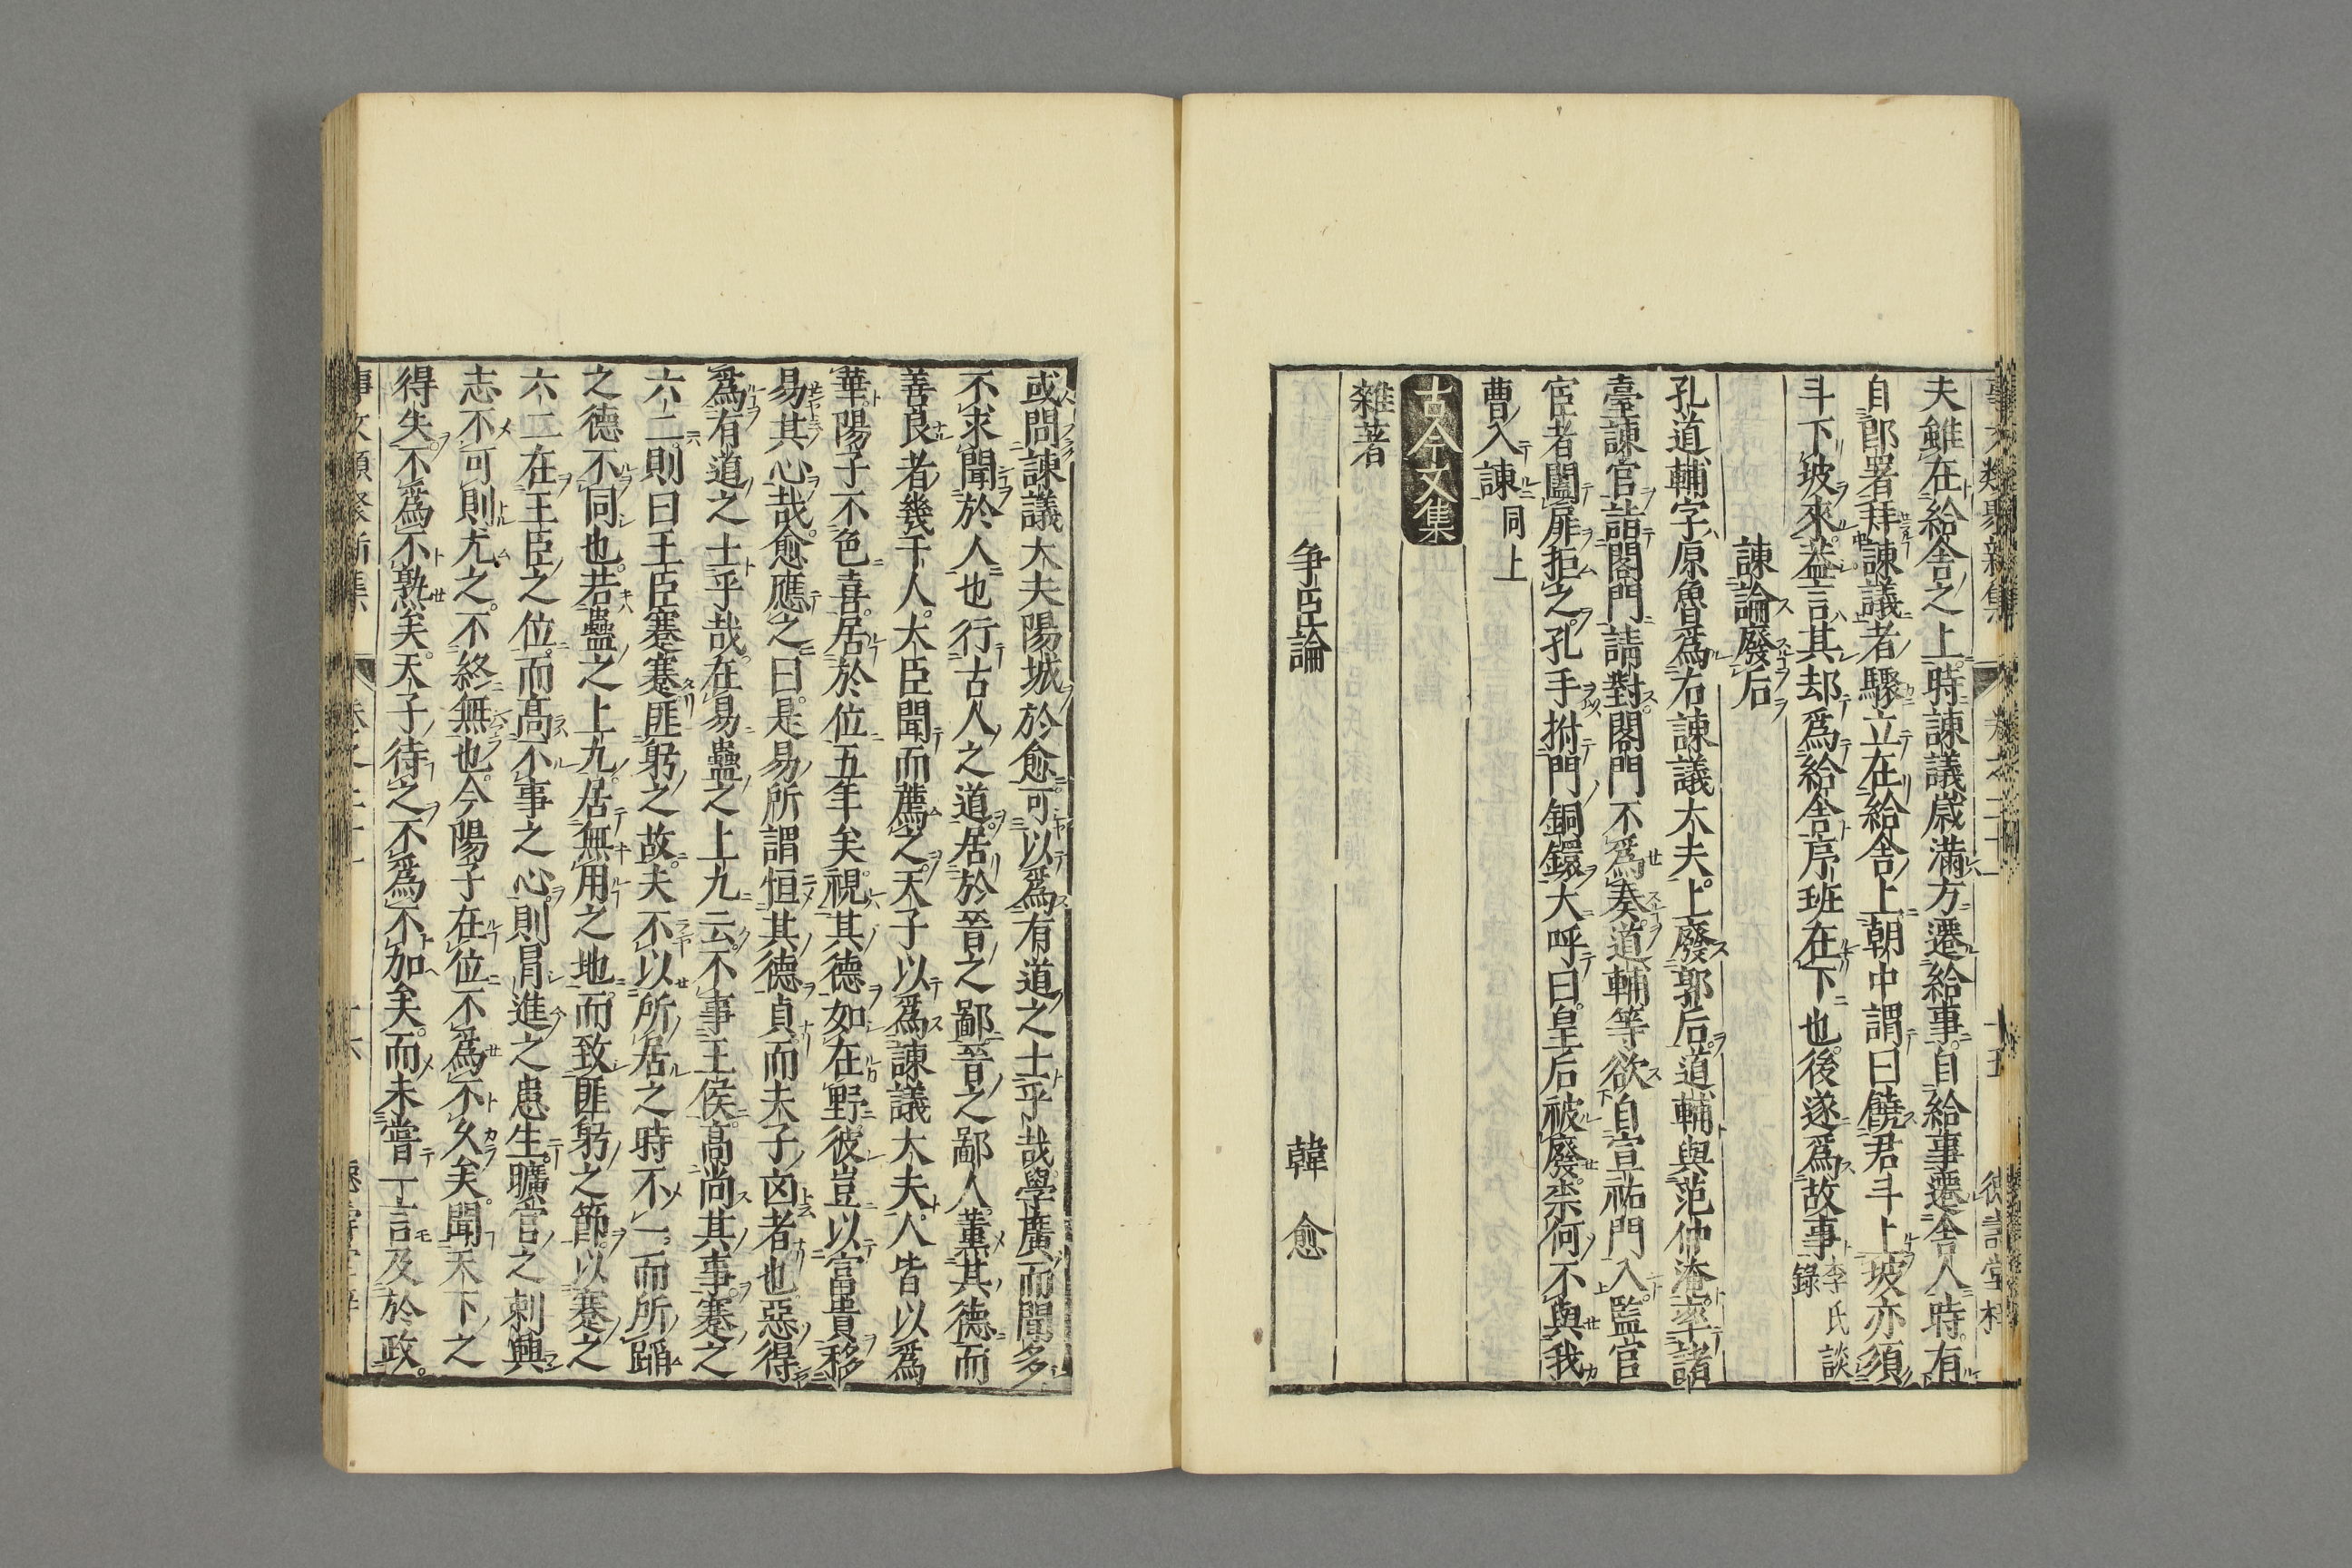 夫雖在給舍之上時諫議歲滿方遷給事自給事遷舍人時有
自郎署拜諫議者驟立在給舍上朝中謂曰饒君斗上坡亦須
斗下坡來葢言其却爲給舍序班在下也後遂爲故事李氏談錄
諫論廢后
孔道輔字原魯爲右諫議大夫上廢郭后道輔與范仲淹率諸
臺諫官詣閤門請對閤門不爲奏道輔等欲自宣祐門入監官
宦者闔扉拒之孔手拊門銅鐶大呼曰皇后被廢柰何不與我
曹入諫同上
古今文集
雜著
爭臣論 韓愈
或問諫議大夫陽城於愈可以爲有道之士乎哉學廣而聞多
不求聞於人也行古人之道居於晉之鄙晉之鄙人薰其德而
善良者幾千人大臣聞而薦之天子以爲諫議大夫人皆以爲
華陽子不色喜居於位五年矣視其德如在野彼豈以富貴移
易其心哉愈應之曰是易所謂恒其德貞而夫子凶者也惡得
爲有道之士乎哉在易蠱之上九云不事王侯高尚其事蹇之
六二則曰王臣蹇蹇匪躬之故夫不以所居之時不一而所蹈
之德不同也若蠱之上九居無用之地而致匪躬之節以蹇之
六二在王臣之位而高不事之心則冐進之患生曠官之刺興
志不可則尤之不終無也今陽子在位不爲不久矣聞天下之
得失不爲不熟矣天子待之不爲不加矣而未嘗一言及於政